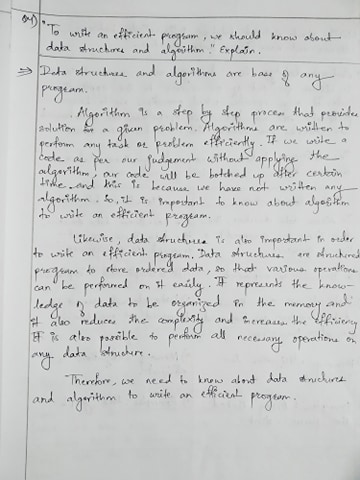 Q4) "To write an efficient program, we should know about
data structures and algorithm." Explain.
⇒ Data structures and algorithms are base of any
program.
Algorithm is a step by step process that provides
solution for a given problem. Algorithms are written to
perform any task or problem efficiently. If we write a
code as per our judgement without applying the
algorithm, our code will be botched up after certain
time and this is because we have not written any
algorithm. So, it is important to know about algorithm
to write an efficient program.
Likewise, data structures is also important in order
to write an efficient program. Data structures are structured
program to store ordered data, so that various operations
can be performed on it easily. It represents the know-
ledge of data to be organized in the memory and
it also reduces the complexity and increases the efficiency
It is also possible to perform all necessary operations on
any data structure.
Therefore, we need to know about data structures
and algorithm to write an efficient program.